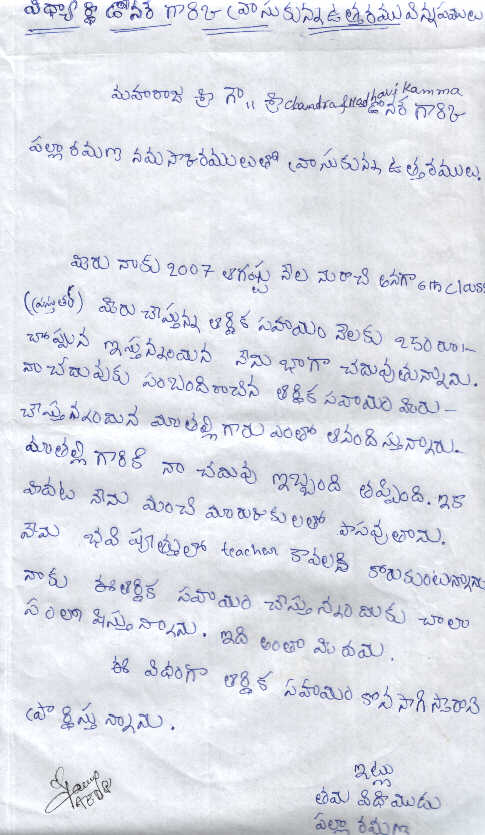 విధ్యార్థి డోనర్ గారికి వ్రాసుకున్న ఉత్తరము విన్నపములు
మహారాజ శ్రీ గౌ,, శ్రీ Chandra & Madhavi Kamma
డోనర్ గారికి
పల్లా రమణ నమస్కారములుతో వ్రాసుకున్న ఉత్తరములు.
మీరు నాకు 2007 ఆగష్టు నెల నుంచి అనగా 6th class
మీరు చేస్తున్న ఆర్థిక సహాయం నెలకు 250 రూ/-
చొప్పున ఇస్తున్నందున నేను బాగా చదువుతున్నాను.
నా చదువుకు సంబందించిన ఆర్థిక సహాయం మీరు -
చేస్తున్నందున మాతల్లి గారు ఎంతో ఆనందిస్తున్నారు.
మాతల్లి గారికి నా చదువు ఇబ్బంది తప్పింది. ఇక
మీదట నేను మంచి మార్కులతో పాసవుతాను.
నేను భవిష్యత్తులో teacher కావలని కోరుకుంటున్నాను
నాకు ఈఆర్థిక సహాయం చేస్తున్నందుకు చాలా
సంతోషిస్తున్నాను. ఇది అంతా మీదయ.
ఈ విధంగా ఆర్థిక సహాయం కొనసాగిస్తారని
ప్రార్థిస్తున్నాను.
ఇట్లు
తమ విధేయుడు
పల్లా రమణ